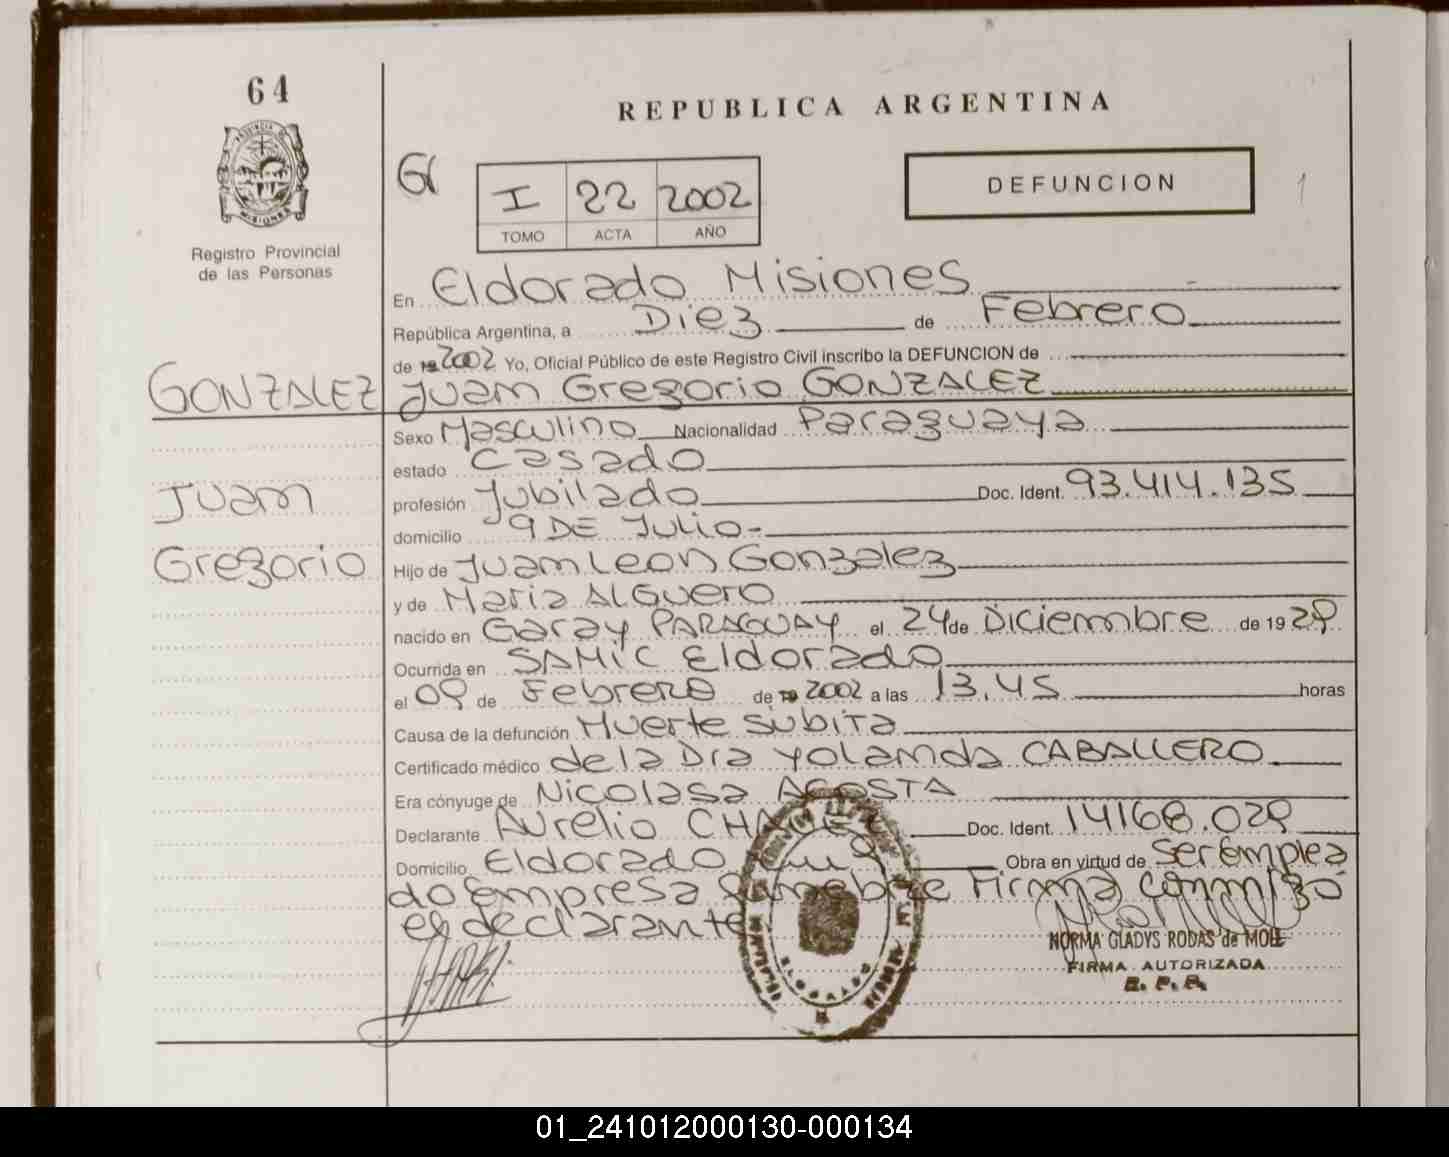 64
REPUBLICA ARGENTINA
PROVINCIA DE
MISIONES
I 22 2002
TOMO ACTA AÑO
DEFUNCION
1
Registro Provincial
de las Personas
En Eldorado Misiones
República Argentina, a Diez de Febrero
de 19 2002 Yo, Oficial Público de este Registro Civil inscribo la DEFUNCION de
GONZALEZ Juan Gregorio GONZALEZ
Sexo Masculino Nacionalidad Paraguaya
estado casado
Juan
profesión Jubilado Doc. Ident. 93.414.135
domicilio 9 DE Julio
Gregorio
Hijo de Juan Leon Gonzalez
y de Maria Alguero
nacido en Garay PARAGUAY el 24 de Diciembre de 19 29
Ocurrida en SAMIC Eldorado
el 09 de Febrero de 19 2002 a las 13.45 horas
Causa de la defunción Muerte subita
Certificado médico de la Dra Yolanda CABALLERO
Era cónyuge de Nicolasa ACOSTA
Declarante Aurelio Doc. Ident. 14168.029
Domicilio Eldorado Obra en virtud de ser emplea
do Empresa Funebre Firma conmigo
el declarante
NORMA GLADYS RODAS de MOLL
FIRMA AUTORIZADA
R. P. P.
01_241012000130-000134